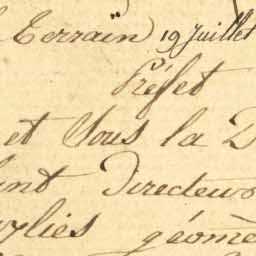 Terrain 19 Juillet
Préfet
et sous la D
Directeur
géomè